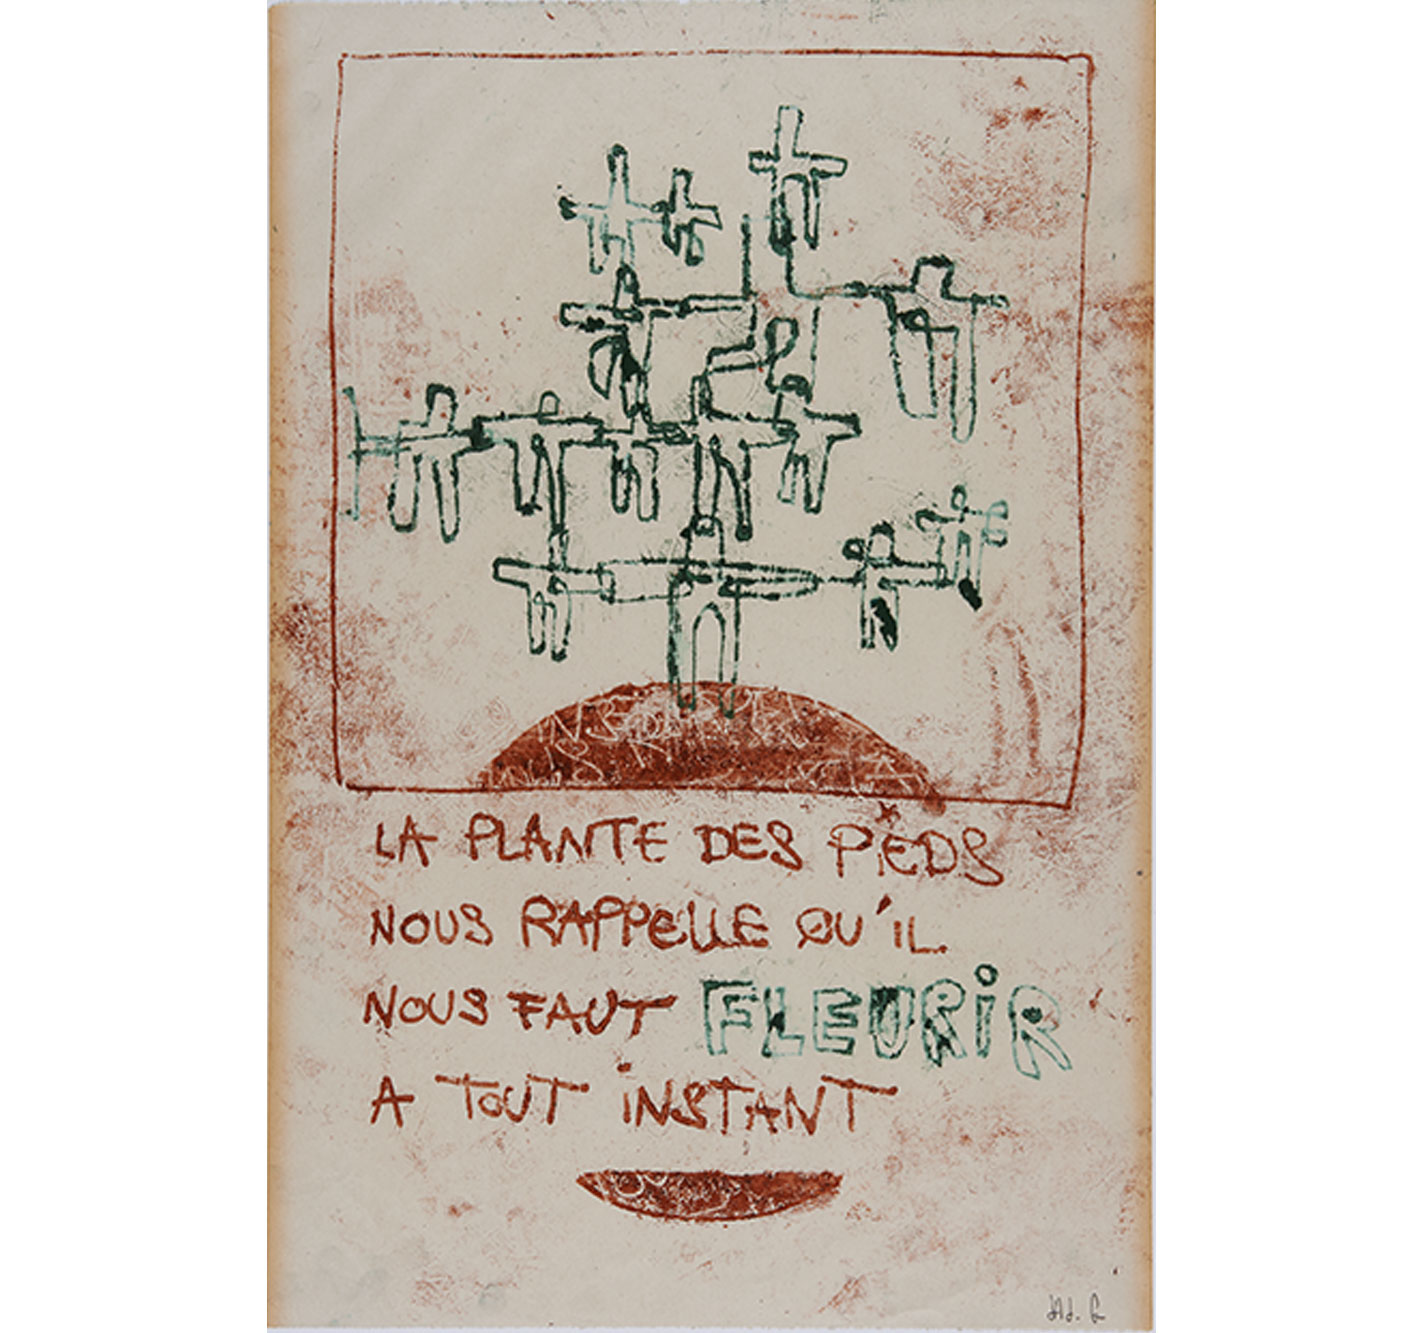 LA PLANTE DES PIEDS
NOUS RAPPELLE QU'IL
NOUS FAUT FLEURIR
A TOUT INSTANT